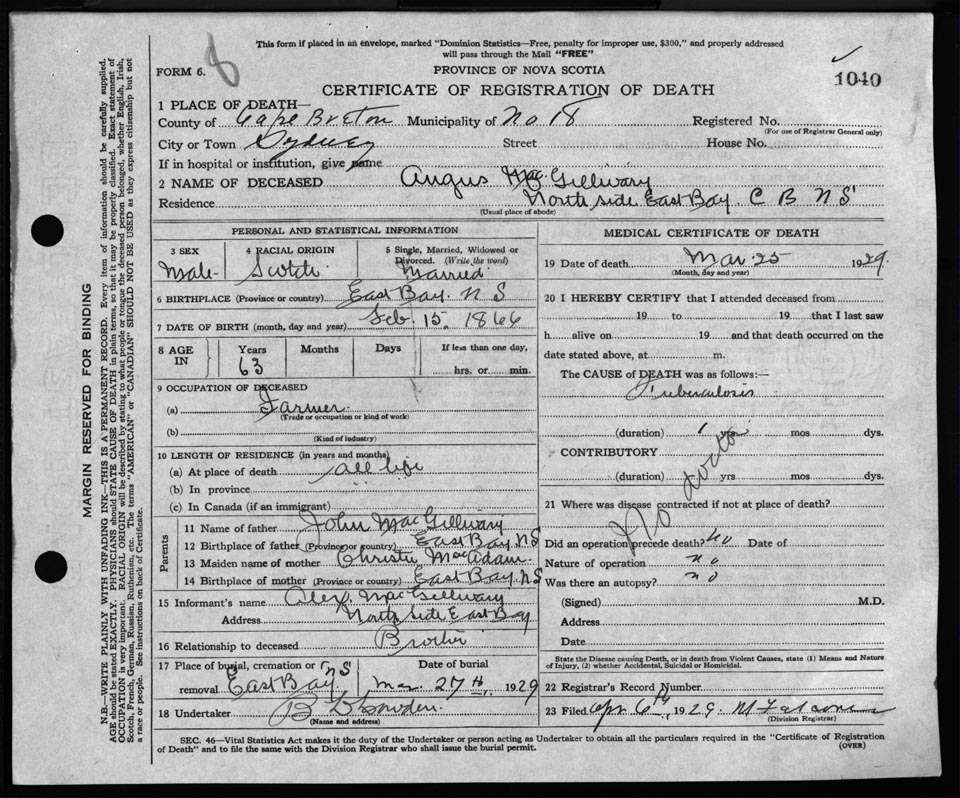 This form if placed in an envelope, marked "Dominion Statistics—Free, penalty for improper use, $300," and properly addressed
will pass through the Mail "FREE"
FORM 6. 8
PROVINCE OF NOVA SCOTIA
1040
CERTIFICATE OF REGISTRATION OF DEATH
1 PLACE OF DEATH—
County of Cape Breton Municipality of No 18 Registered No.
(For use of Registrar General only)
City or Town Sydney Street House No.
If in hospital or institution, give name
2 NAME OF DECEASED Angus MacGillivary
Residence North Side East Bay C B N S
(Usual place of abode)
PERSONAL AND STATISTICAL INFORMATION
3 SEX 4 RACIAL ORIGIN 5 Single, Married, Widowed or
Divorced. (Write the word)
Male Scotch Married
6 BIRTHPLACE (Province or country) East Bay N S
7 DATE OF BIRTH (month, day and year) Feb. 15, 1866
8 AGE IN Years Months Days If less than one day,
63 hrs. or min.
9 OCCUPATION OF DECEASED
(a) Farmer
(Trade or occupation or kind of work)
(b)
(Kind of industry)
10 LENGTH OF RESIDENCE (in years and months)
(a) At place of death all life
(b) In province
(c) In Canada (if an immigrant)
Parents
11 Name of father John MacGillivary
12 Birthplace of father (Province or country) East Bay N S
13 Maiden name of mother Christie MacAdam
14 Birthplace of mother (Province or country) East Bay N S
15 Informant's name Alex MacGillivary
Address North Side East Bay
16 Relationship to deceased Brother
17 Place of burial, cremation or Date of burial
removal East Bay N S Mar 27th, 1929
18 Undertaker
(Name and address)
MEDICAL CERTIFICATE OF DEATH
19 Date of death Mar 25 1929
(Month, day and year)
20 I HEREBY CERTIFY that I attended deceased from
19 to 19 that I last saw
h alive on 19 and that death occurred on the
date stated above, at m.
The CAUSE of DEATH was as follows:—
Tuberculosis
(duration) 1 yrs. mos dys.
CONTRIBUTORY
(duration) yrs mos dys.
No doctor
21 Where was disease contracted if not at place of death?
Did an operation precede death? No Date of
Nature of operation no
Was there an autopsy? no
(Signed) M.D.
Address
Date
State the Disease causing Death, or in death from Violent Causes, state (1) Means and Nature
of Injury, (2) whether Accidental, Suicidal or Homicidal.
22 Registrar's Record Number
23 Filed Apr 6th, 1929
(Division Registrar)
SEC. 46—Vital Statistics Act makes it the duty of the Undertaker or person acting as Undertaker to obtain all the particulars required in the "Certificate of Registration
of Death" and to file the same with the Division Registrar who shall issue the burial permit.
(OVER)
MARGIN RESERVED FOR BINDING
N.B.—WRITE PLAINLY WITH UNFADING INK—THIS IS A PERMANENT RECORD. Every item of information should be carefully supplied.
AGE should be stated EXACTLY. PHYSICIANS should STATE CAUSE OF DEATH in plain terms, so that it may be properly classified. Exact statement of
OCCUPATION is very important. RACIAL ORIGIN will be described by stating to what people or tongue the deceased person belonged, whether English, Irish,
Scotch, French, German, Russian, Ruthenian, etc. The terms "AMERICAN" or "CANADIAN" SHOULD NOT BE USED as they express citizenship but not
a race or people. See instructions on back of Certificate.